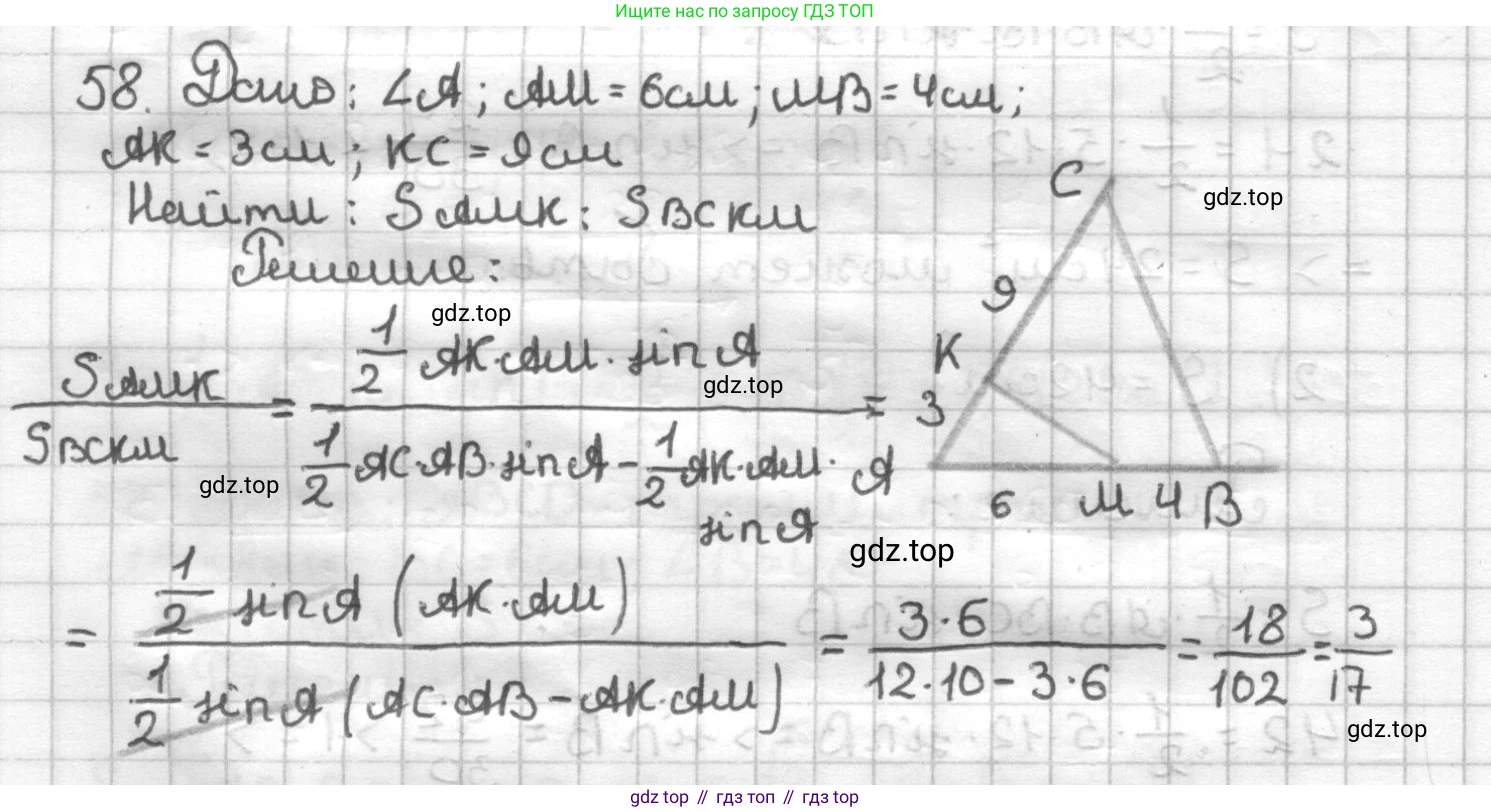 Ищите нас по запросу ГДЗ ТОП
58. Дано: ∠A; AM = 6см; MB = 4см;
AK = 3см; KC = 9см
Найти: S AMK : S BCKM
Решение:
gdz.top
S AMK / S BCKM = (1/2 AK·AM·sin A) / (1/2 AC·AB·sin A − 1/2 AK·AM· sin A) =
gdz.top
gdz.top
= (1/2 sin A (AK·AM)) / (1/2 sin A (AC·AB − AK·AM)) = (3·6) / (12·10 − 3·6) = 18/102 = 3/17
gdz.top
gdz.top
C
gdz.top
9
K
3
A
6 M 4 B
gdz.top // гдз топ // гдз.top